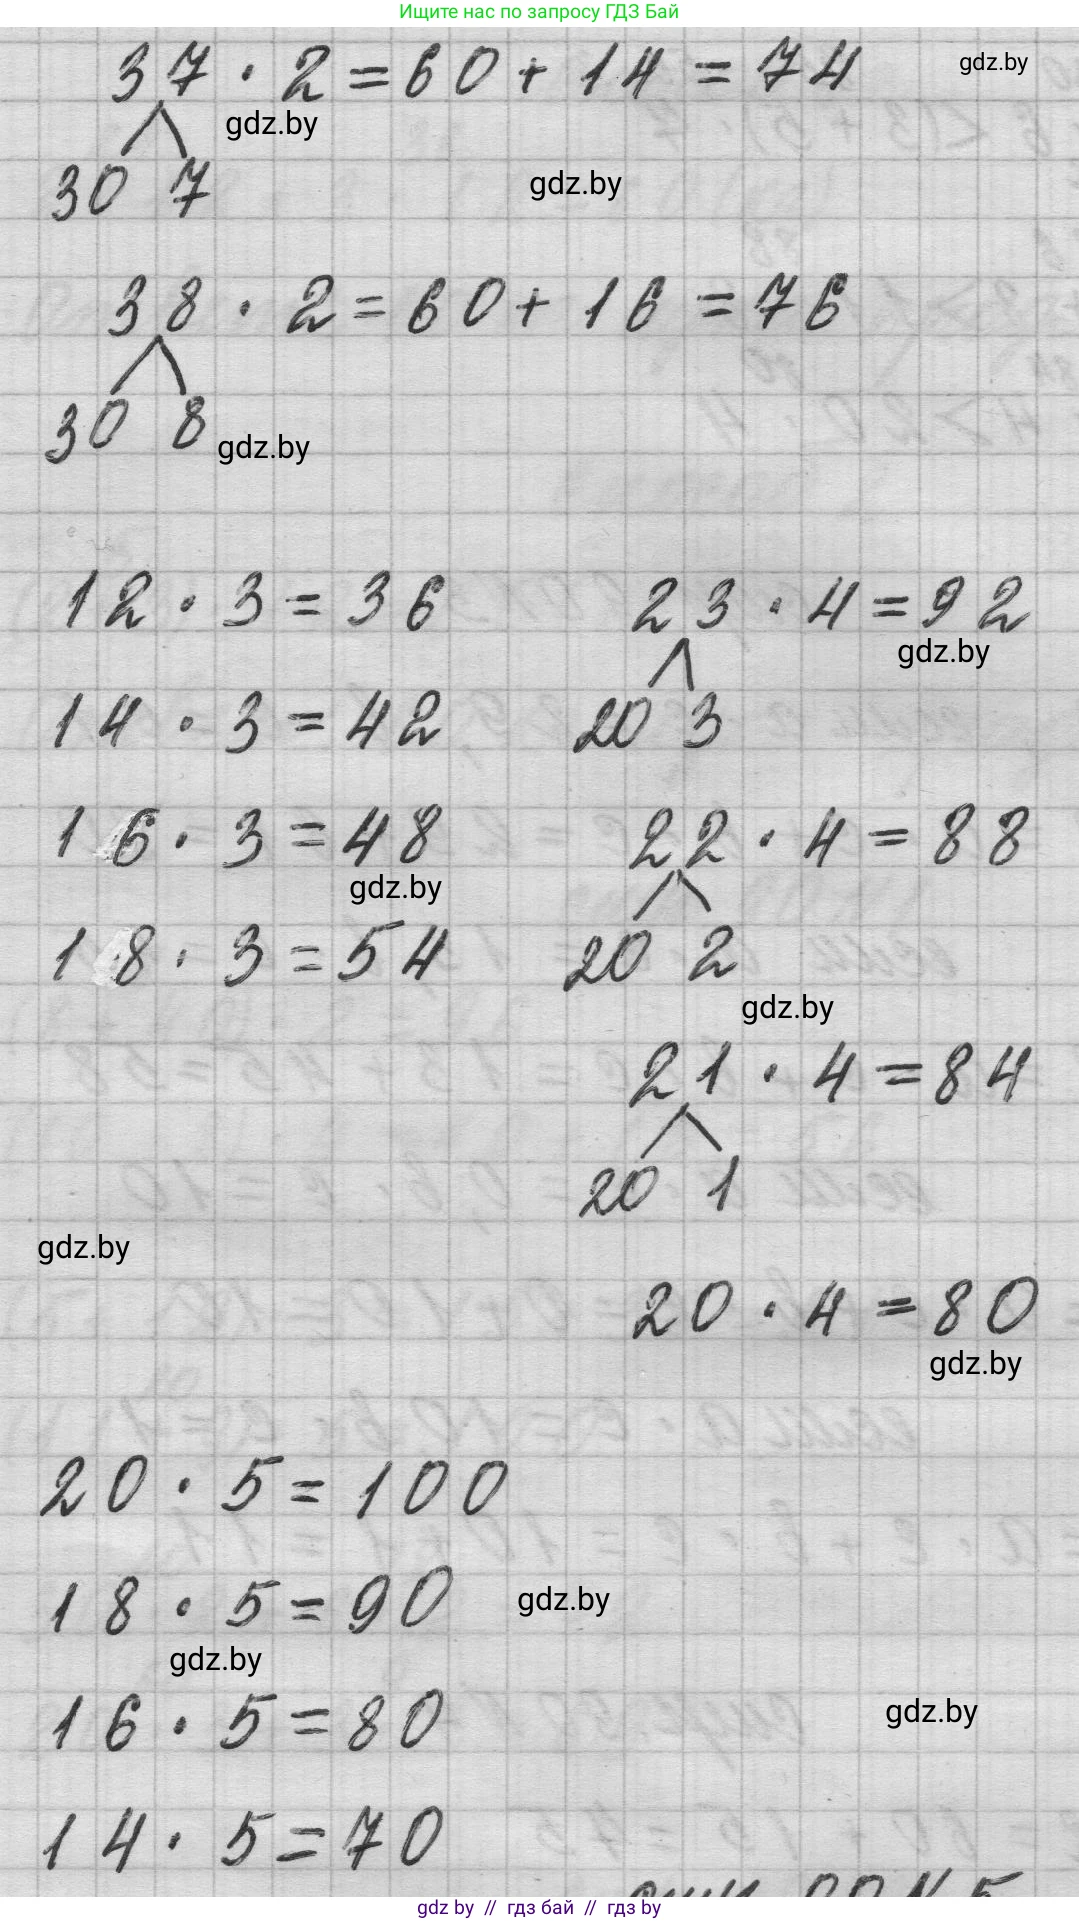 Ищите нас по запросу ГДЗ Бай
37 · 2 = 60 + 14 = 74
gdz.by
gdz.by
30 7
gdz.by
38 · 2 = 60 + 16 = 76
30 8
gdz.by
12 · 3 = 36
23 · 4 = 92
gdz.by
14 · 3 = 42
20 3
16 · 3 = 48
22 · 4 = 88
gdz.by
18 · 3 = 54
20 2
gdz.by
21 · 4 = 84
20 1
gdz.by
20 · 4 = 80
gdz.by
20 · 5 = 100
18 · 5 = 90
gdz.by
gdz.by
16 · 5 = 80
gdz.by
14 · 5 = 70
gdz by // гдз бай // гдз by